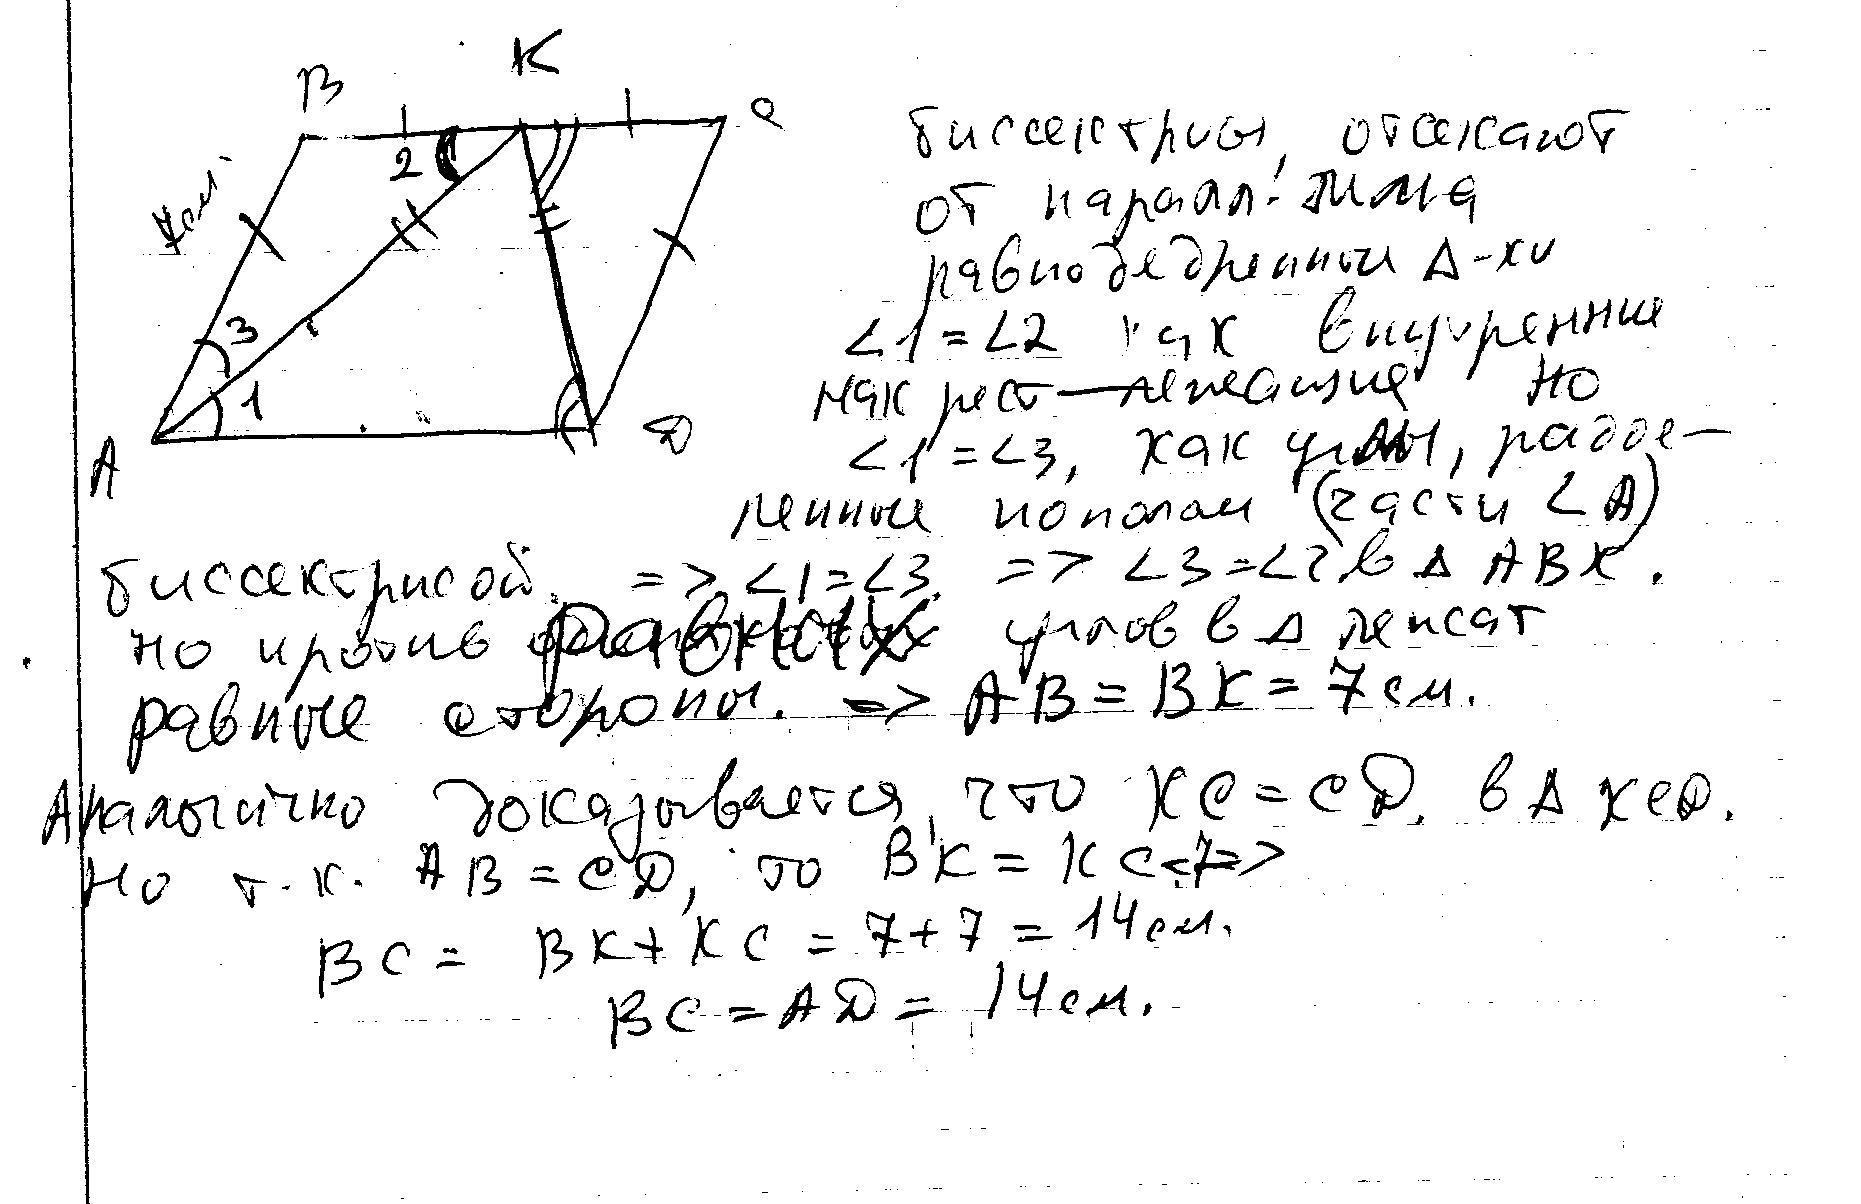 В
К
С
7см
2
3
1
А
D
биссектрисы, отсекают
от паралл. мма
равнобедренные Δ-ки
∠1 = ∠2 как внутренние
накрест-лежащие но
∠1 = ∠3, как углы, разде-
ленные пополам (части ∠А)
биссектрисой. => ∠1 = ∠3. => ∠3 = ∠2 в Δ АВК.
но против равных углов в Δ лежат
равные стороны. => АВ = ВК = 7 см.
Аналогично доказывается, что КС = СD. в Δ КСD.
Но т.к. АВ = СD, то ВК = КС = 7 =>
ВС = ВК + КС = 7 + 7 = 14 см.
ВС = АD = 14 см.